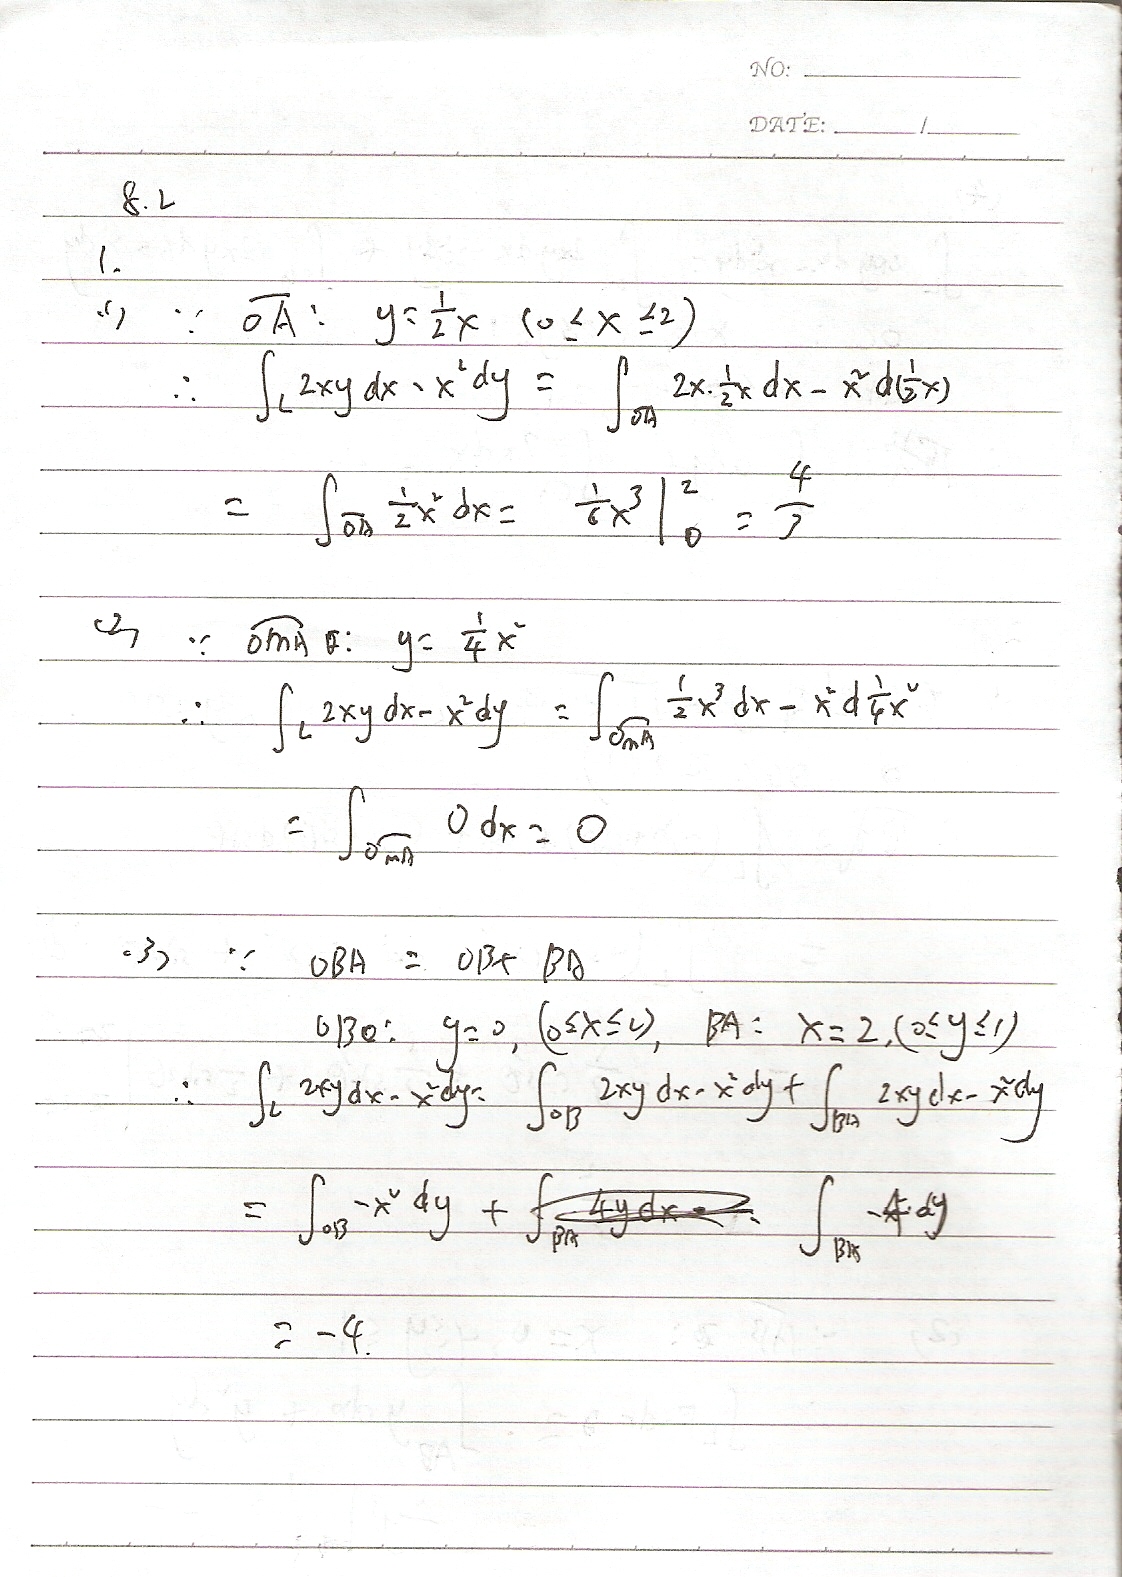 NO:
DATE: /
8.2
1.
(1) ∵ OA: y=½x (0≤x≤2)
∴ ∫L 2xy dx - x²dy = ∫OA 2x·½x dx - x² d(½x)
= ∫OA ½x² dx = ⅙x³ |₀² = 4/3
(2) ∵ OmA: y= ¼x²
∴ ∫L 2xy dx - x²dy = ∫OmA ½x³ dx - x² d¼x²
= ∫OmA 0 dx = 0
(3) ∵ OBA = OB+ BA
OB: y=0, (0≤x≤2), BA: x=2, (0≤y≤1)
∴ ∫L 2xy dx - x²dy= ∫OB 2xy dx - x²dy + ∫BA 2xy dx - x²dy
= ∫OB -x² dy + ∫BA -4 dy
= -4.